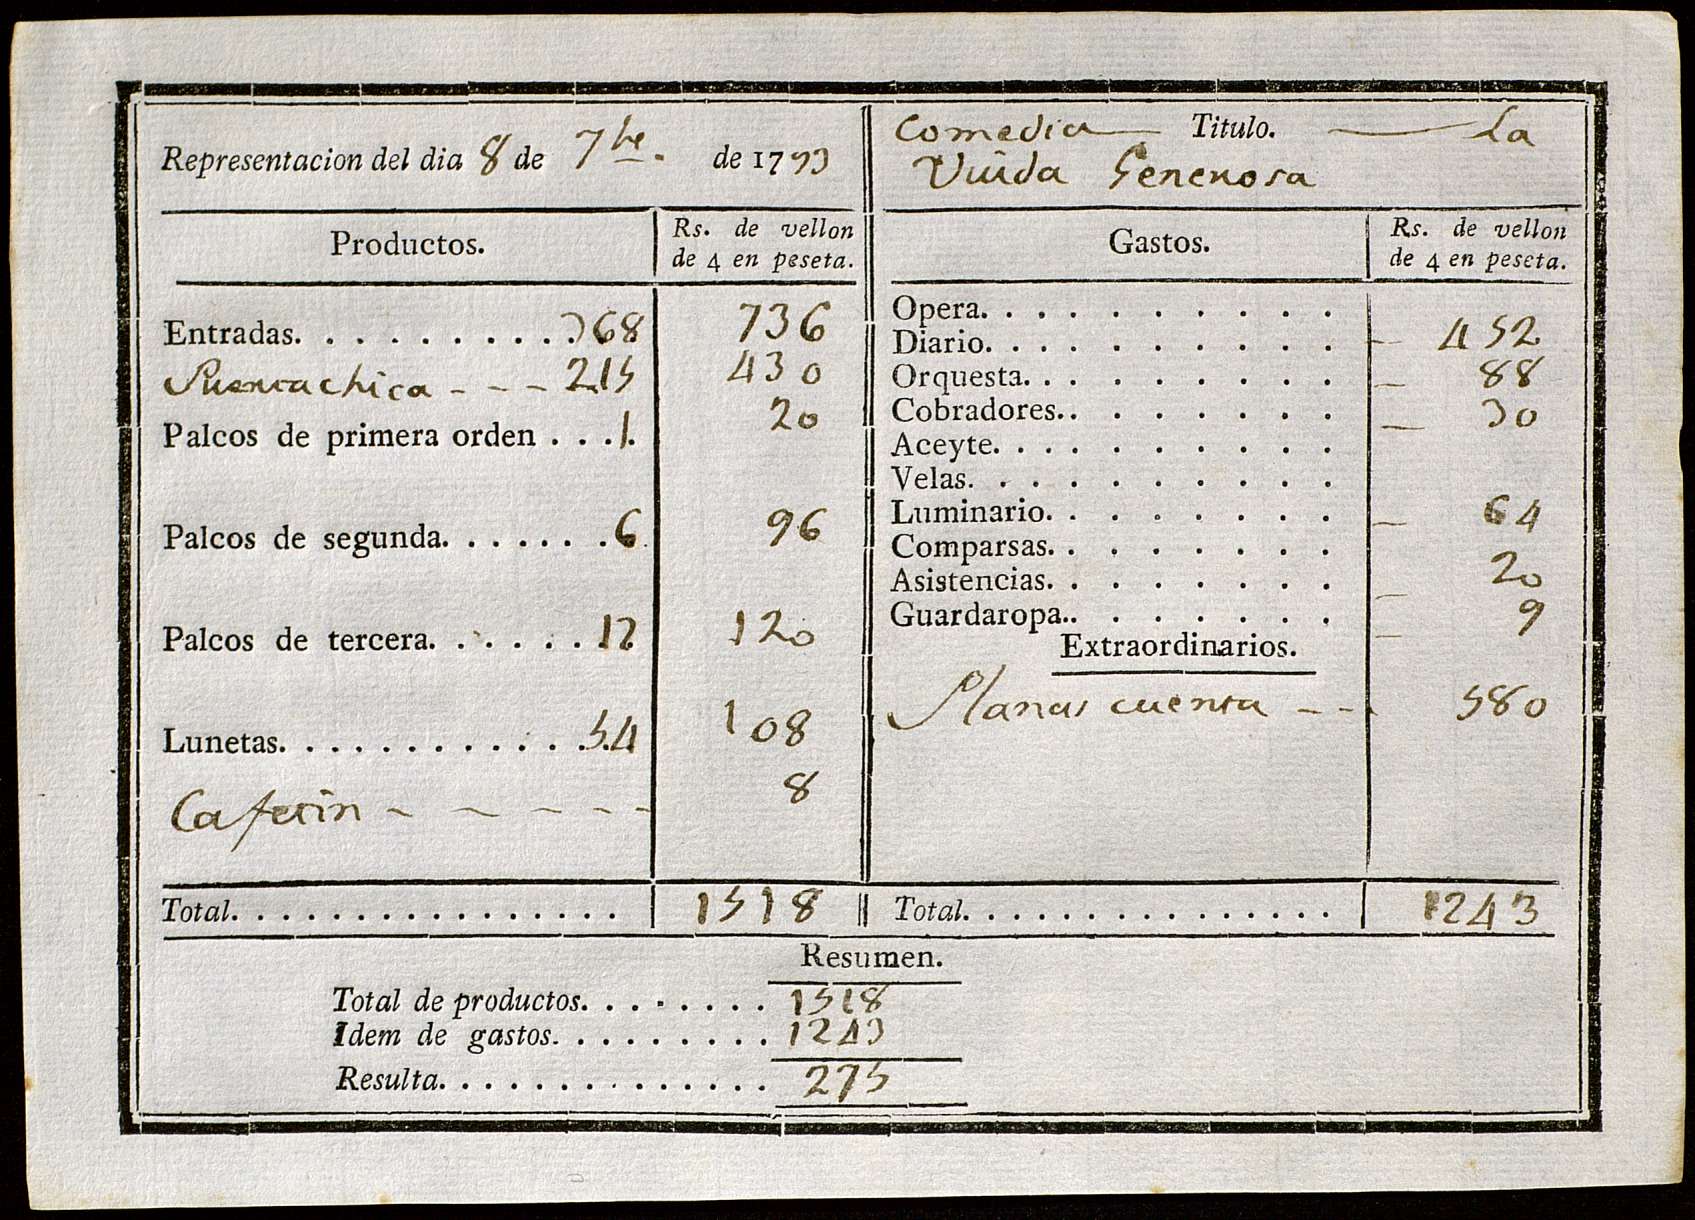 Representacion del dia 8 de 7bre. de 1793
Comedia Titulo. La
Viuda Generosa
Productos.
Rs. de vellon
de 4 en peseta.
Entradas. . . . . . . . . . . 368 736
Puertachica - - - 215 430
Palcos de primera orden . . . 1. 20
Palcos de segunda. . . . . . . 6 96
Palcos de tercera. . . . . . 12 120
Lunetas. . . . . . . . . . . . . 54 108
Cafetin - - - - - - 8
Total. . . . . . . . . . . . . . . . . 1518
Gastos.
Rs. de vellon
de 4 en peseta.
Opera. . . . . . . . . .
Diario. . . . . . . . . . 452
Orquesta. . . . . . . . 88
Cobradores.. . . . . . . 30
Aceyte. . . . . . . . .
Velas. . . . . . . . . .
Luminario. . . . . . . . 64
Comparsas. . . . . . . .
Asistencias. . . . . . . . 20
Guardaropa.. . . . . . . 9
Extraordinarios.
Planas cuenta - - - 580
Total. . . . . . . . . . . . . . . . 1243
Resumen.
Total de productos. . . . . . . . 1518
Idem de gastos. . . . . . . . . . 1243
Resulta. . . . . . . . . . . . . . 275